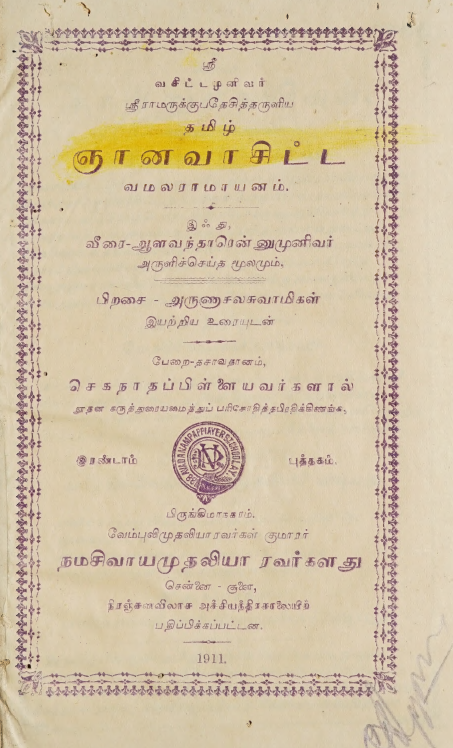 ஸ்ரீ
வசிட்டமுனிவர்
ஸ்ரீராமருக்குபதேசித்தருளிய
தமிழ்
ஞானவாசிட்ட
வமலராமாயனம்.
இஃது,
வீரை-ஆளவந்தாரென்னுமுனிவர்
அருளிச்செய்த மூலமும்,
பிறசை - அருணாசலசுவாமிகள்
இயற்றிய உரையுடன்
பேறை-தசாவதானம்,
செகநாதப்பிள்ளையவர்களால்
நூதன கருத்துரையமைத்துப் பரிசோதித்தபிரதிக்கிணங்க,
இரண்டாம் புத்தகம்.
வேம்புலிமுதலியாரவர்கள் குமாரர்
நமசிவாயமுதலியா ரவர்களது
சென்னை - சூளை,
நிரஞ்சனவிலாச அச்சியந்திரசாலையிற்
பதிப்பிக்கப்பட்டன.
1911.